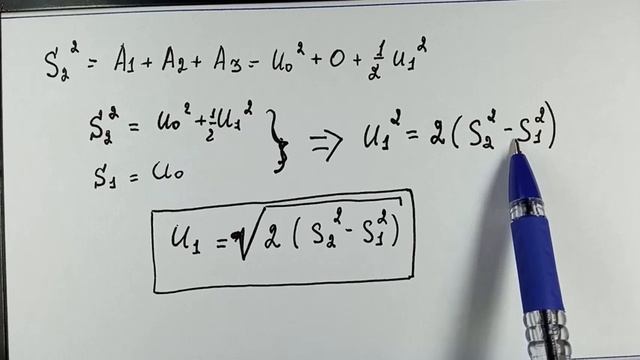 S₂² = A₁ + A₂ + A₃ = u₀² + 0 + ½ u₁²
S₂² = u₀² + ½ u₁² } ⇒ u₁² = 2 ( S₂² - S₁² )
S₁ = u₀
u₁ = √2 ( S₂² - S₁² )